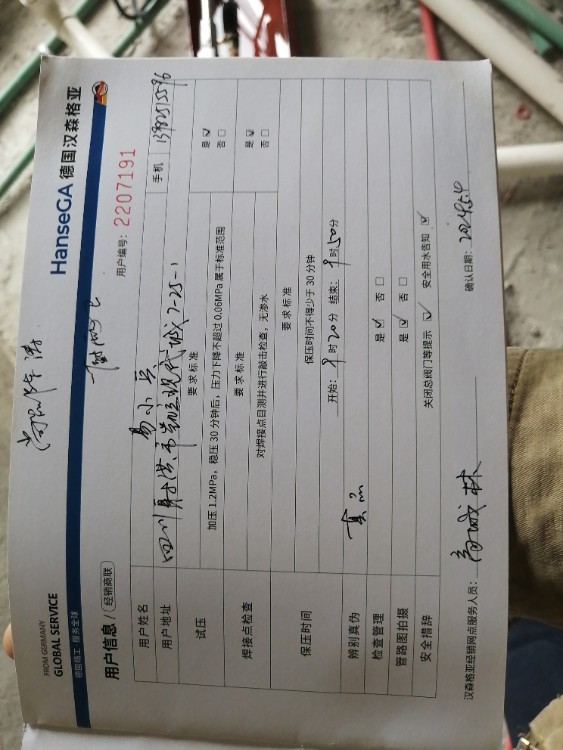 FROM GERMANY
GLOBAL SERVICE
HanseGA 德国汉森格亚
德国精工 服务全球
用户信息/ 经销商联
用户编号: 2207191
用户姓名 易小兵 手机
用户地址 四川射洪市 现代城7-25-1
试压 要求标准 是 ☑ 否 □
加压 1.2MPa，稳压 30 分钟后，压力下降不超过 0.06MPa 属于标准范围
焊接点检查 要求标准 是 ☑ 否 □
对焊接点目测并进行敲击检查，无渗水
保压时间 要求标准
保压时间不得少于 30 分钟
开始: 9时20分 结束: 9时50分
辨别真伪 真品
检查管理 是 ☑ 否 □
管路图拍摄 是 ☑ 否 □
安全措辞 关闭总阀门等提示 ☑ 安全用水告知 ☑
汉森格亚经销网点服务人员: 确认日期: 2024.5.4